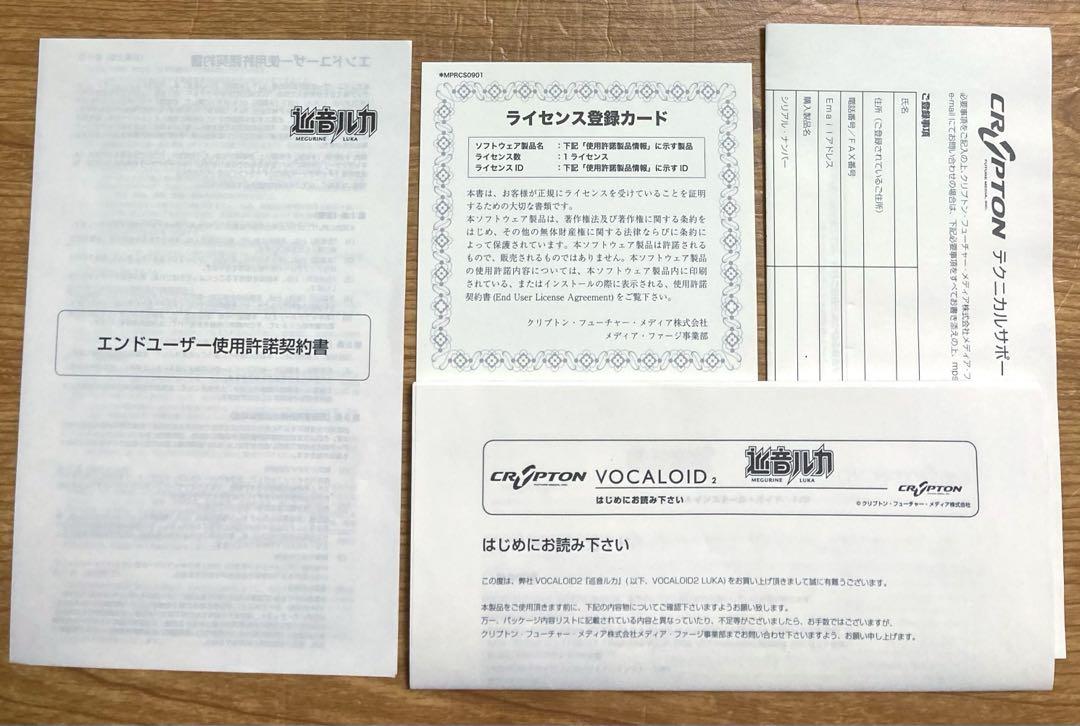 巡音ルカ
MEGURINE LUKA
エンドユーザー使用許諾契約書
*MPRCS0901
ライセンス登録カード
ソフトウェア製品名 : 下記「使用許諾製品情報」に示す製品
ライセンス数 : 1 ライセンス
ライセンス ID : 下記「使用許諾製品情報」に示す ID
本書は、お客様が正規にライセンスを受けていることを証明
するための大切な書類です。
本ソフトウェア製品は、著作権法及び著作権に関する条約を
はじめ、その他の無体財産権に関する法律ならびに条約に
よって保護されています。本ソフトウェア製品は許諾される
もので、販売されるものではありません。本ソフトウェア製品
の使用許諾内容については、本ソフトウェア製品内に印刷
されている、またはインストールの際に表示される、使用許諾
契約書 (End User License Agreement) をご覧下さい。
クリプトン・フューチャー・メディア株式会社
メディア・ファージ事業部
CRYPTON テクニカルサポー
FUTURE MEDIA, INC.
必要事項をご記入の上、クリプトン・フューチャー・メディア株式会社メディア・フ
e-mail にてお問い合わせの場合は、下記必要事項をすべてお書き添えの上、mps
ご登録事項
氏名
住所（ご登録されているご住所）
電話番号／ＦＡＸ番号
Ｅｍａｉｌアドレス
購入製品名
シリアル・ナンバー
CRYPTON VOCALOID2 巡音ルカ
FUTURE MEDIA, INC.
MEGURINE LUKA
はじめにお読み下さい
CRYPTON
© クリプトン・フューチャー・メディア株式会社
はじめにお読み下さい
この度は、弊社 VOCALOID2「巡音ルカ」(以下、VOCALOID2 LUKA) をお買い上げ頂きまして誠に有難うございます。
本製品をご使用頂きます前に、下記の内容物についてご確認下さいますようお願い致します。
万一、パッケージ内容リストに記載されている内容と異なっていたり、不足等がございましたら、お手数ではございますが、
クリプトン・フューチャー・メディア株式会社メディア・ファージ事業部までお問い合わせ下さいますよう、お願い申し上げます。